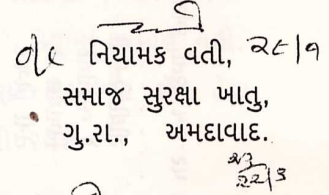 નિયામક વતી, ૨૯/૧
સમાજ સુરક્ષા ખાતુ,
ગુ.રા., અમદાવાદ.